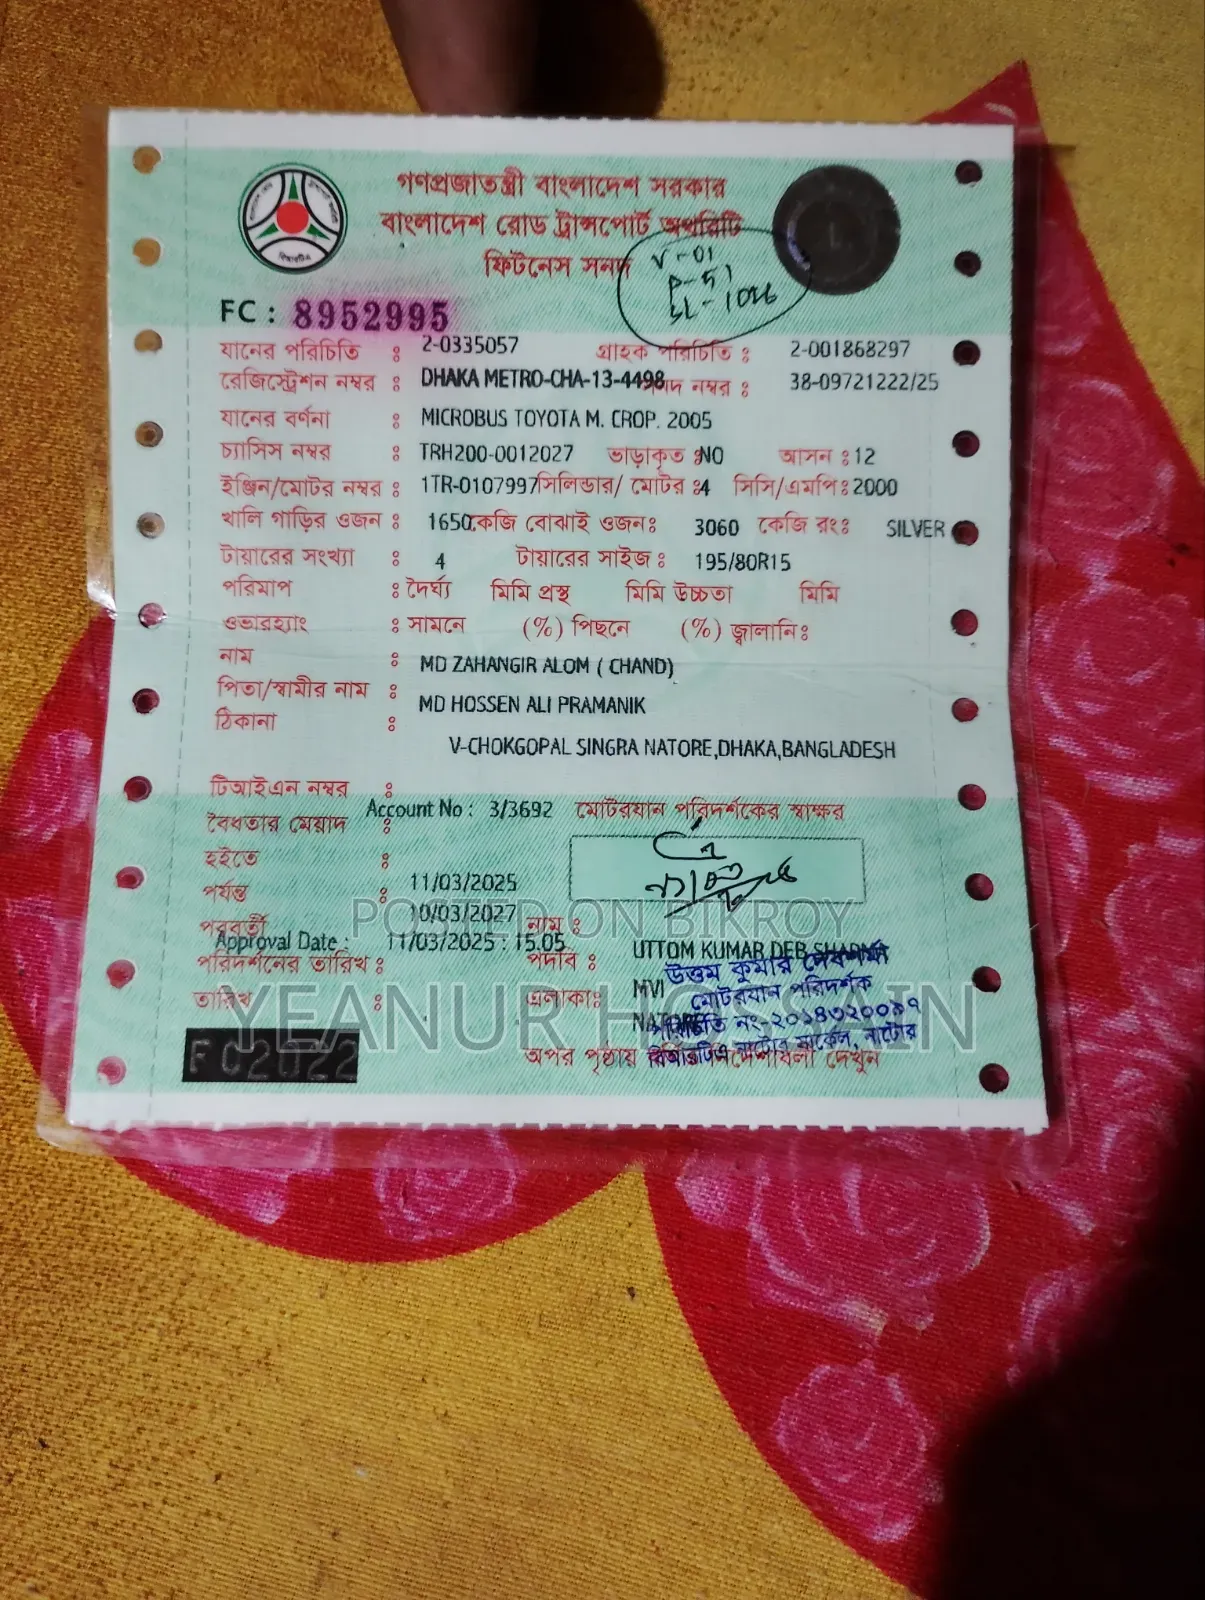 গণপ্রজাতন্ত্রী বাংলাদেশ সরকার
বাংলাদেশ রোড ট্রান্সপোর্ট অথরিটি
ফিটনেস সনদ
V-01
P-51
SL-1026
FC : 8952995
যানের পরিচিতি : 2-0335057 গ্রাহক পরিচিতি : 2-001868297
রেজিস্ট্রেশন নম্বর : DHAKA METRO-CHA-13-4498 সনদ নম্বর : 38-09721222/25
যানের বর্ণনা : MICROBUS TOYOTA M. CROP. 2005
চ্যাসিস নম্বর : TRH200-0012027 ভাড়াকৃত : NO আসন : 12
ইঞ্জিন/মোটর নম্বর : 1TR-0107997 সিলিন্ডার/ মোটর : 4 সিসি/এমপি : 2000
খালি গাড়ির ওজন : 1650 কেজি বোঝাই ওজন : 3060 কেজি রং : SILVER
টায়ারের সংখ্যা : 4 টায়ারের সাইজ : 195/80R15
পরিমাপ : দৈর্ঘ্য মিমি প্রস্থ মিমি উচ্চতা মিমি
ওভারহ্যাং : সামনে (%) পিছনে (%) জ্বালানি :
নাম : MD ZAHANGIR ALOM ( CHAND)
পিতা/স্বামীর নাম : MD HOSSEN ALI PRAMANIK
ঠিকানা :
V-CHOKGOPAL SINGRA NATORE,DHAKA,BANGLADESH
টিআইএন নম্বর :
Account No : 3/3692 মোটরযান পরিদর্শকের স্বাক্ষর
বৈধতার মেয়াদ :
হইতে : 11/03/2025
পর্যন্ত : 10/03/2027
POSTED ON BIKROY
পরবর্তী নাম :
Approval Date : 11/03/2025 : 15.05 UTTOM KUMAR DEB SHARMA
পরিদর্শনের তারিখ : পদবি : MVI
উত্তম কুমার দেবশর্মা
মোটরযান পরিদর্শক
তারিখ : এলাকা : NATORE
পরিচিতি নং-২০১৪৩২০০৯৭
বিআরটিএ নাটোর সার্কেল, নাটোর
YEANUR HOSSAIN
FC2022
অপর পৃষ্ঠায় বর্ণিত নির্দেশাবলী দেখুন